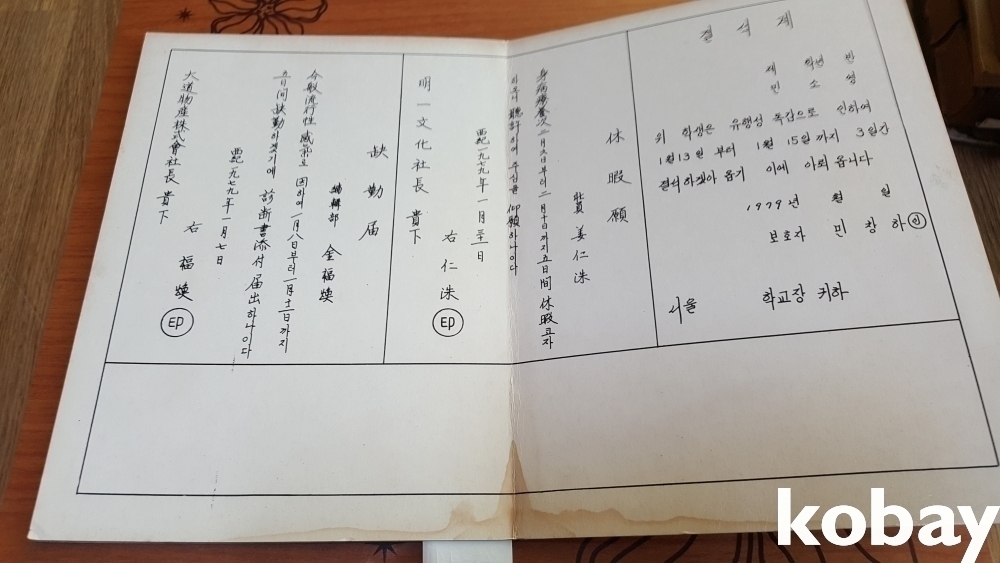 결석계
제 학년 반
민소영
위 학생은 유행성 독감으로 인하여
1월 13일 부터 1월 15일까지 3일간
결석하겠아옵기 이에 아뢰옵니다
1979년 월 일
보호자 민창하 인
서울 학교장 귀하
休暇願
社員 姜仁洙
身病療養次 二月六日부터 二月十日까지 五日間 休暇코자
하오니 聽許하여 주심을 仰願하나이다
西紀一九七九年 一月 三十一日
右 仁洙 印
明一文化社長 貴下
缺勤届
編輯部 金福煥
今般流行性 感氣로 因하여 一月八日부터 一月十二日까지
五日間 缺勤하겠기에 診断書添付 届出하나이다
西紀一九七九年 一月七日
右 福煥 印
大道物産株式會社長 貴下
kobay